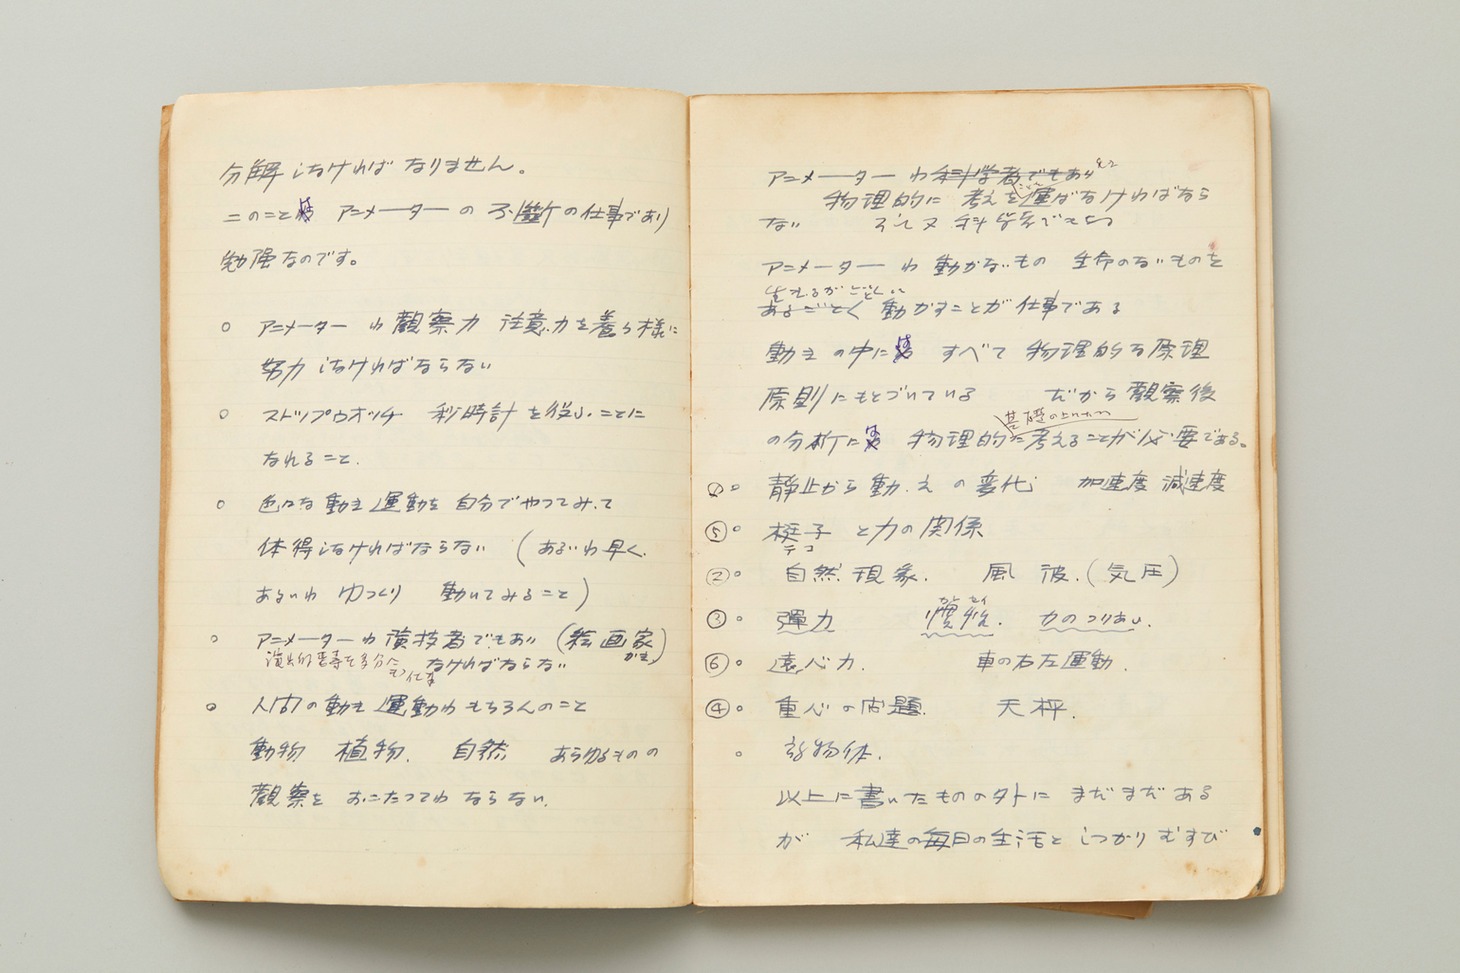 分解しなければなりません。
このことは アニメーターの 不断の仕事であり
勉強なのです。
○ アニメーター わ 観察力 注意力を養う様に
努力しなければならない
○ ストップウオッチ 秒時計を使ふことに
なれること.
○ 色々な動き運動を自分でやつてみて
体得しなければならない (あるいわ早く
あるいわ ゆつくり 動いてみること)
○ アニメーターわ演技者でもあり (絵画家)
演出的
なければならない
○ 人間の動き運動わもちろんのこと
動物 植物. 自然 あらゆるものの
観察を おこたつてわ ならない.
アニメーター わ科学者でもあり
物理的に 考えを運ばなければなら
ない そして又 科学
アニメーター わ 動かないもの 生命のないものを
生きるがごとくに
あるごとく 動かすことが仕事である
動きの中には すべて 物理的な原理
原則にもとづいている だから観察後
基礎の上にたつ
の分析には 物理的に考えることが必要である。
① ○ 静止から動きの変化 加速度 減速度
⑤ ○ 梃子と力の関係
テコ
② ○ 自然現象. 風 波.(気圧)
かんせい
③ ○ 弾力 慣性. 力のつりあい.
⑥ ○ 遠心力. 車の右左運動.
④ ○ 重心の問題. 天秤.
○ 物体.
以上に書いたものの外に まだまだある
が 私達の毎日の生活と しつかり むすび